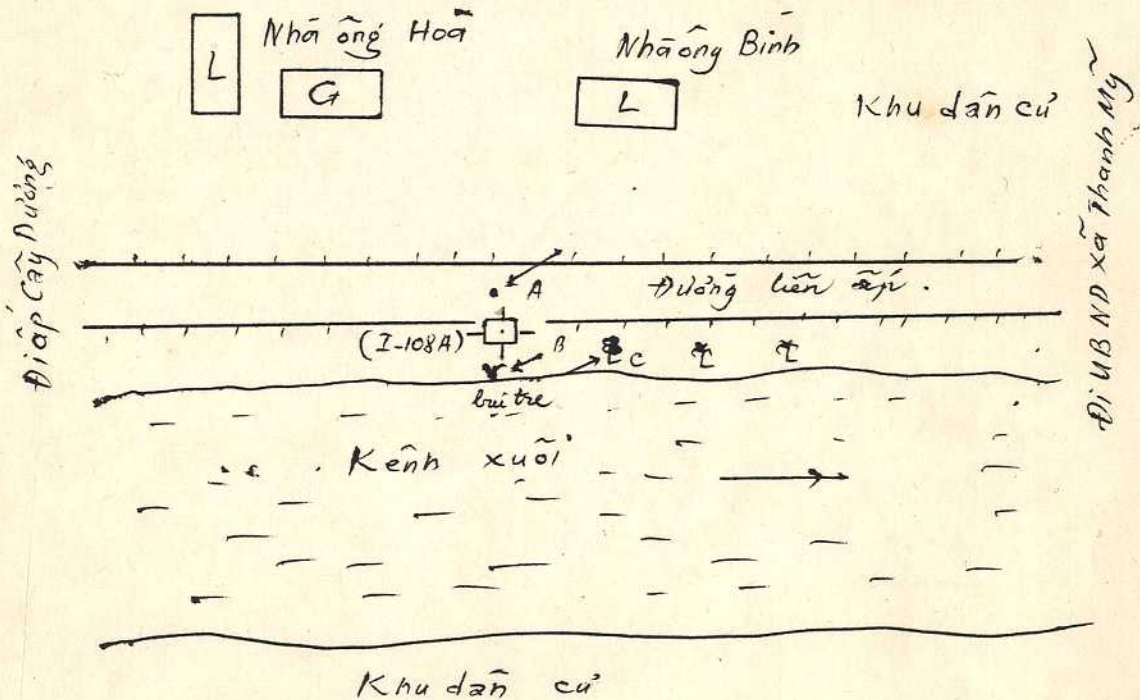 Nhà ông Hoà
L
G
Nhà ông Bình
L
Khu dân cư
Đi ấp Cây Dương
Đi UBND xã Thanh Mỹ
A
Đường liên ấp.
(I-108A)
B
C
bụi tre
Kênh xuôi
Khu dân cư